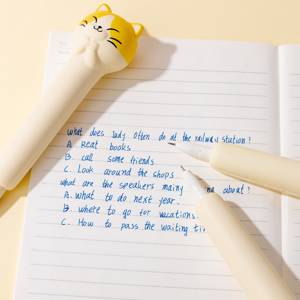 What does Judy often do at the railway station?
A. Reat books
B. call some friends
C. Look around the shops.
what are the speakers mainy about?
A. What to do next year.
B. where to go for vacations.
C. How to pass the waiting